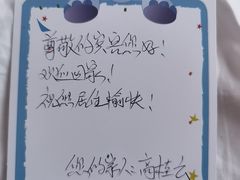 尊敬的宾客您好!
欢迎回家!
祝您居住愉快!
您的亲人:高桂云